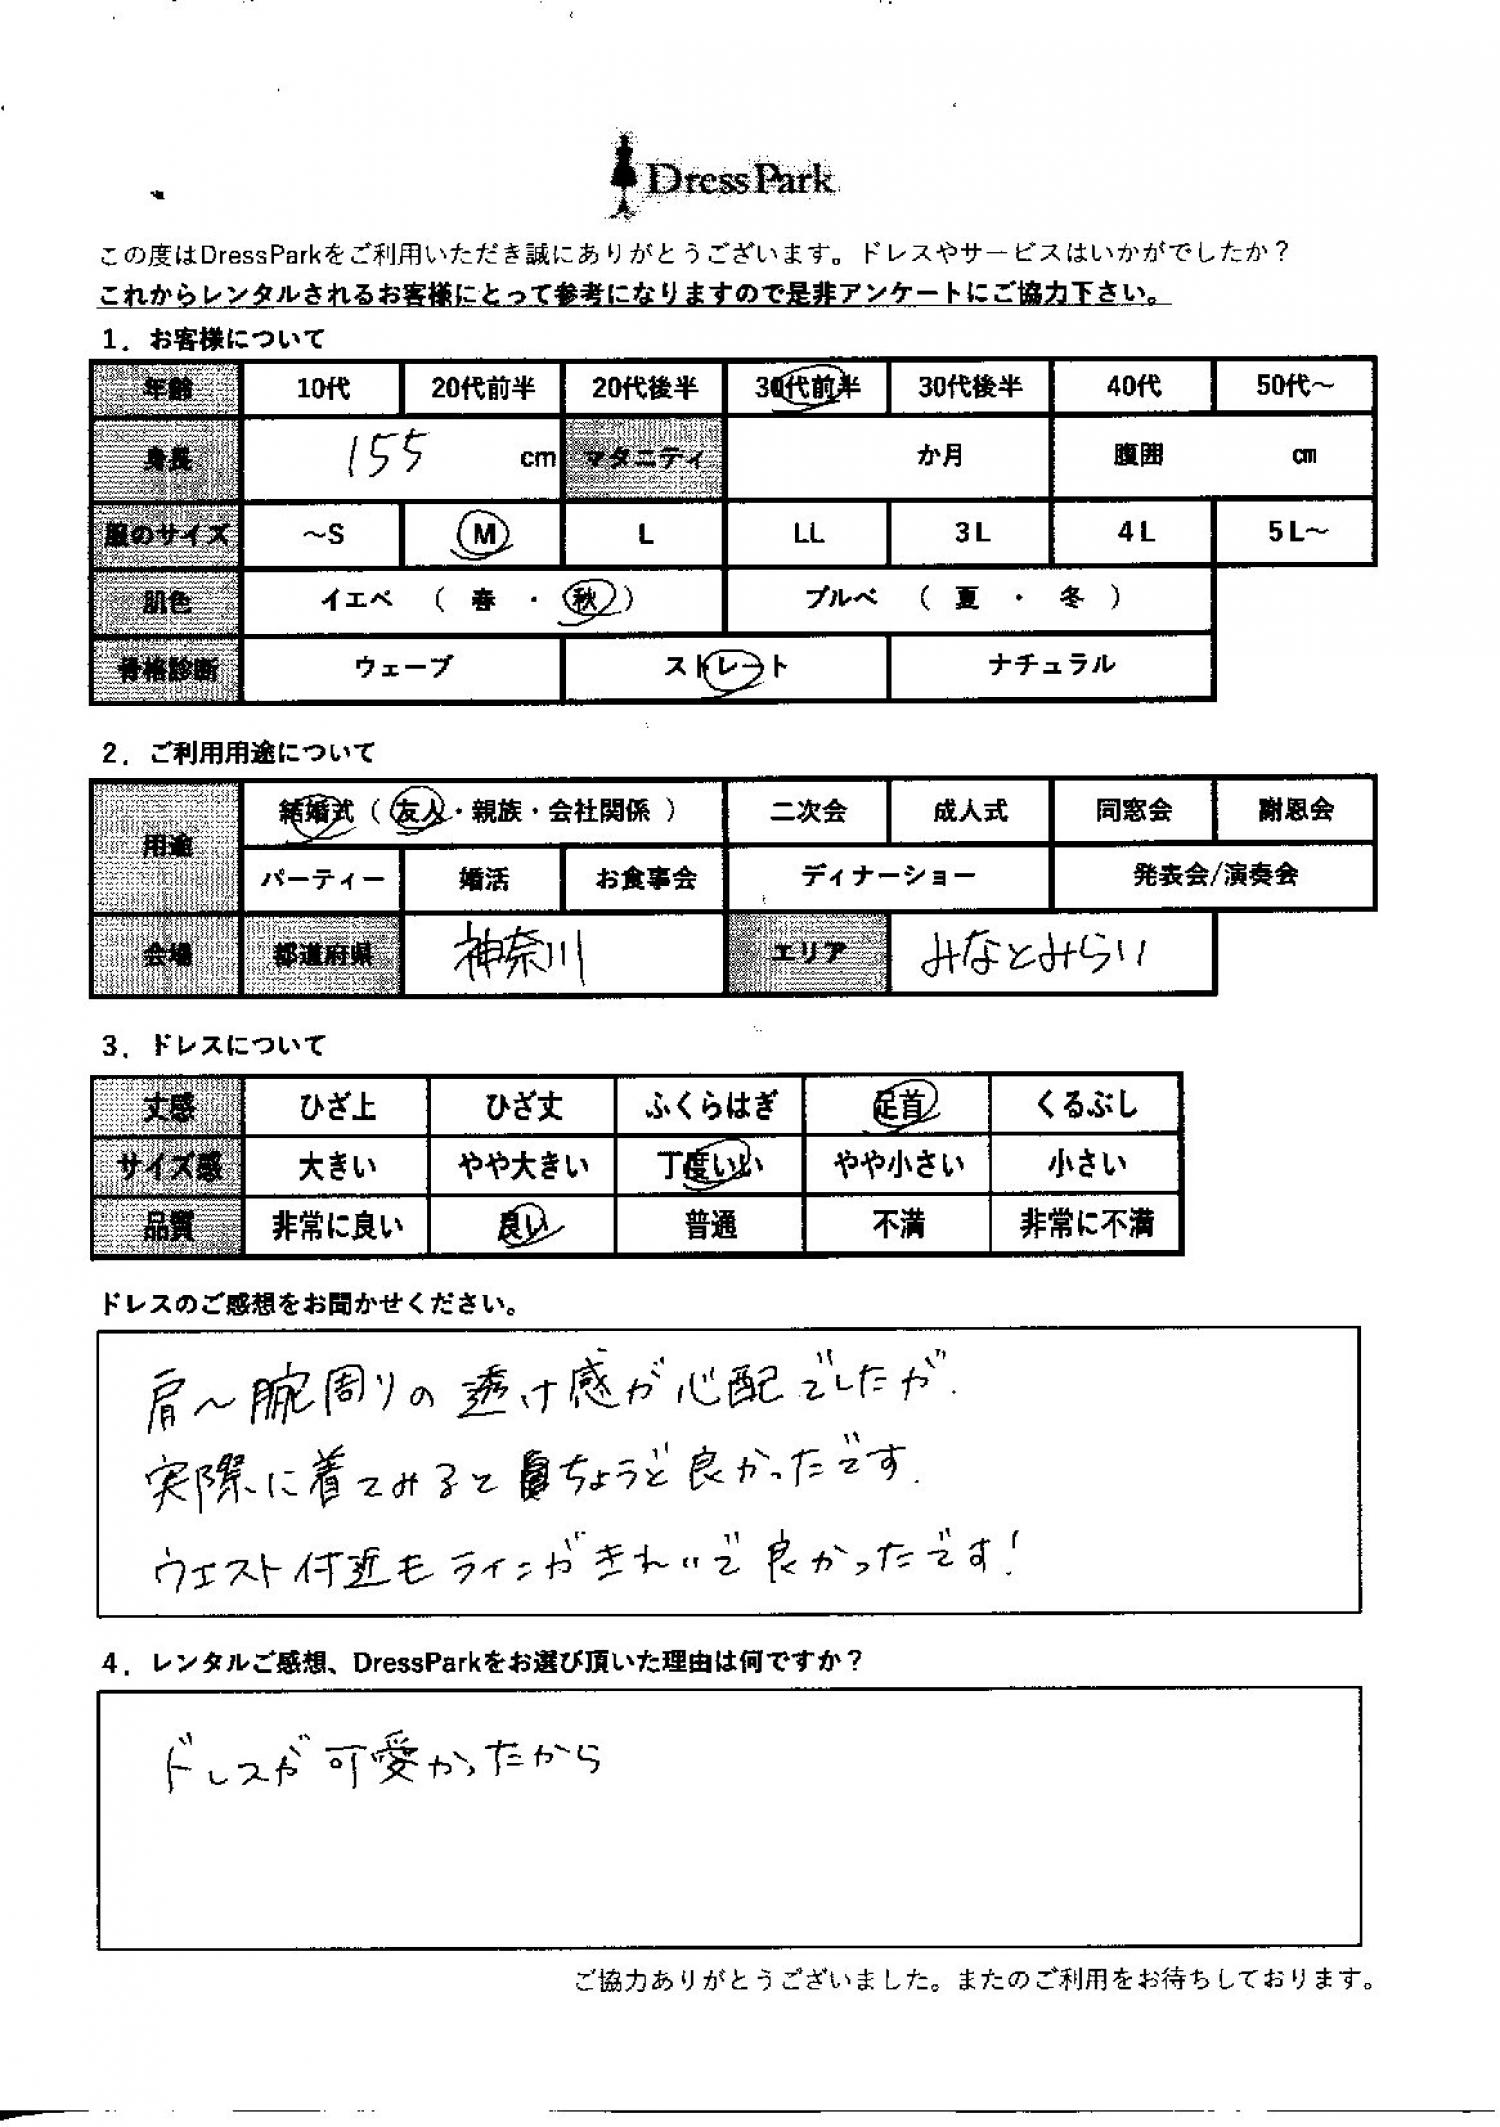 DressPark
この度はDressParkをご利用いただき誠にありがとうございます。ドレスやサービスはいかがでしたか？
これからレンタルされるお客様にとって参考になりますので是非アンケートにご協力下さい。
1．お客様について
年齢 10代 20代前半 20代後半 30代前半 30代後半 40代 50代～
身長 155 cm マタニティ か月 腹囲 cm
服のサイズ ～S M L LL 3L 4L 5L～
肌色 イエベ （ 春 ・ 秋 ） ブルベ （ 夏 ・ 冬 ）
骨格診断 ウェーブ ストレート ナチュラル
2．ご利用用途について
用途 結婚式（ 友人・親族・会社関係 ） 二次会 成人式 同窓会 謝恩会
パーティー 婚活 お食事会 ディナーショー 発表会/演奏会
会場 都道府県 神奈川 エリア みなとみらい
3．ドレスについて
丈感 ひざ上 ひざ丈 ふくらはぎ 足首 くるぶし
サイズ感 大きい やや大きい 丁度いい やや小さい 小さい
品質 非常に良い 良い 普通 不満 非常に不満
ドレスのご感想をお聞かせください。
肩～腕周りの透け感が心配でしたが、
実際に着てみるとちょうど良かったです.
ウエスト付近もラインがきれいで良かったです!
4．レンタルご感想、DressParkをお選び頂いた理由は何ですか？
ドレスが可愛かったから
ご協力ありがとうございました。またのご利用をお待ちしております。